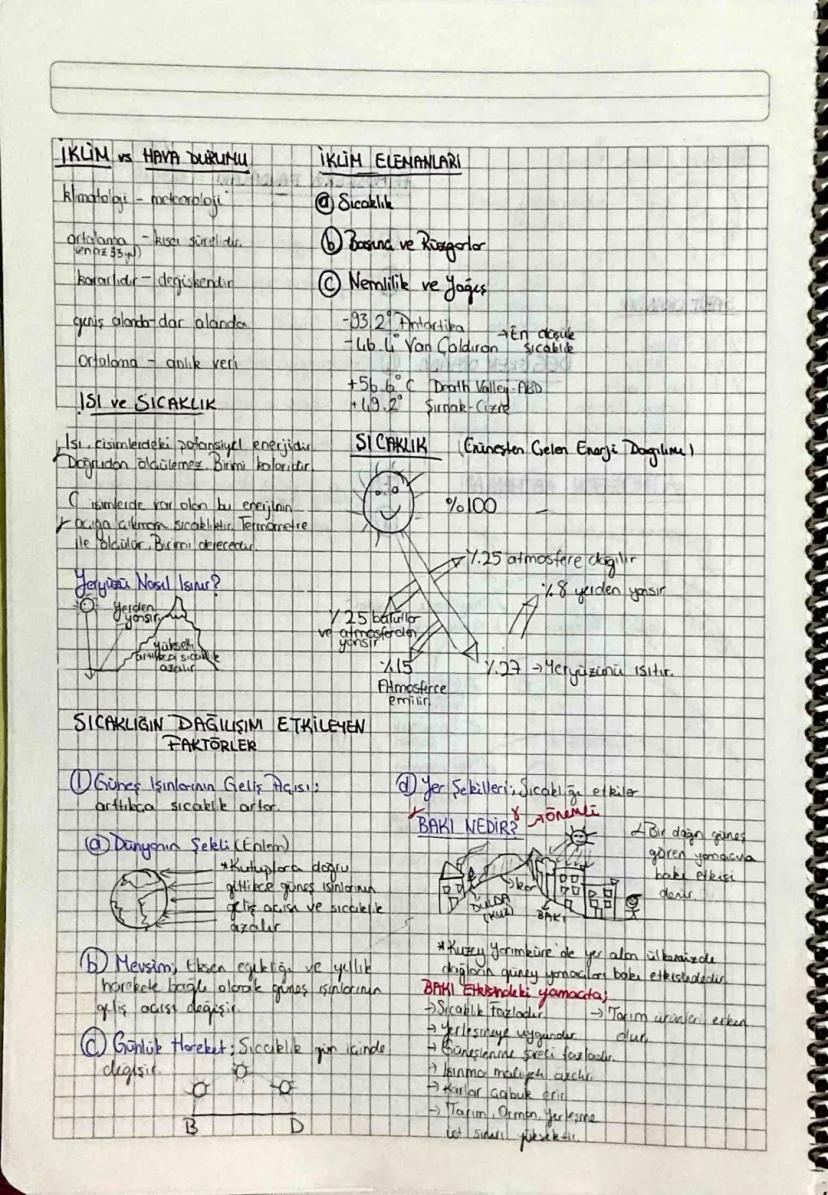 İKLİM vs HAVA DURUMU
klimatoloji - meteoroloji
ortalama - kısa sürelidir.
(en az 35 yıl)
kararlıdır - değişkendir
geniş alanda - dar alanda
Ortalama - anlık veri
ISI ve SICAKLIK
Isı, cisimlerdeki potansiyel enerjidir
Doğrudan ölçülemez. Birimi kaloridir.
Cisimlerde var olan bu enerjinin
açığa çıkması sıcaklıktır. Termometre
ile ölçülür. Birimi derecedir.
Yeryüzü Nasıl Isınır?
Yerden
yansır
yüksek
arttıkça sıcaklık
azalır
İKLİM ELEMANLARI
a Sıcaklık
b Basınç ve Rüzgarlar
c Nemlilik ve Yağış
-93.2° Antartika → En düşük
-46.4° Van Çaldıran sıcaklık
+56.6°C Death Valley-ABD
+49.2° Şırnak-Cizre
SICAKLIK (Güneşten Gelen Enerji Dağılımı)
%100
%25 atmosfere dağılır
%8 yerden yansır
%25 bulutlar
ve atmosferden
yansır
%15
Atmosferce
emilir.
%27 → Yeryüzünü ısıtır.
SICAKLIĞIN DAĞILIŞINI ETKİLEYEN
FAKTÖRLER
1 Güneş Işınlarının Geliş Açısı:
arttıkça sıcaklık artar.
a Dünyanın Şekli (Enlem)
*Kutuplara doğru
gittikçe güneş ışınlarının
geliş açısı ve sıcaklık
azalır
b Mevsim; Eksen eğikliği ve yıllık
harekete bağlı olarak güneş ışınlarının
geliş açısı değişir.
c Günlük Hareket; Sıcaklık gün içinde
değişir.
B D
d Yer Şekilleri; Sıcaklığı etkiler
BAKI NEDİR? → ÖNEMLİ
Bir dağın güneş
gören yamacına
bakı etkisi
denir.
kar
DULDA
(KUZ)
BAKI
*Kuzey Yarımküre'de yer alan ülkemizde
dağların güney yamaçları bakı etkisindedir.
BAKI Etkisindeki yamaçta;
→ Sıcaklık fazladır
→ Tarım ürünleri erken
olur.
→ Yerleşmeye uygundur
→ Güneşlenme süresi fazladır.
→ Isınma maliyeti azdır.
→ Karlar çabuk erir
→ Tarım, Orman, Yerleşme
üst sınırı yüksektir.